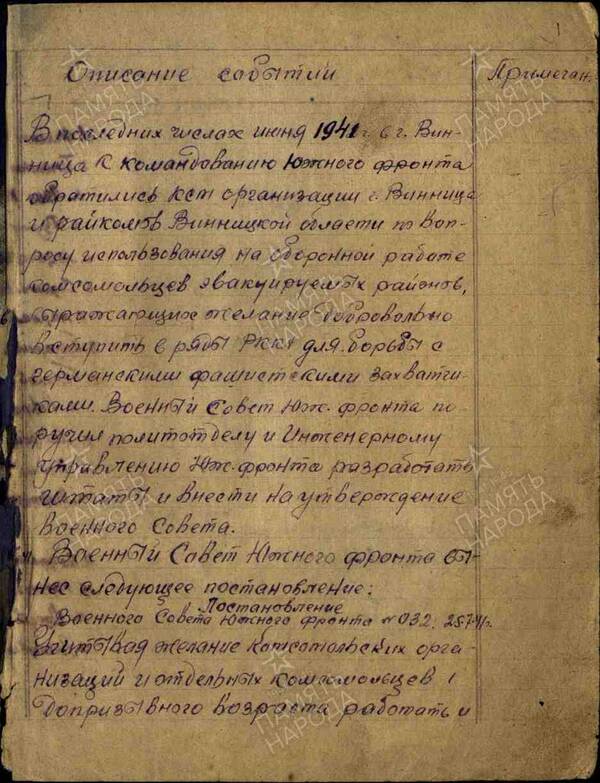 1
Описание событий
Примечан.
В последних числах июня 1941 г. в г. Вин-
ница к командованию Южного фронта
обратились ксм организации г. Винница
и райкомов Винницкой области по воп-
росу использования на оборонной работе
комсомольцев эвакуируемых районов,
выражающих желание добровольно
вступить в ряды РККА для борьбы с
германскими фашистскими захватчи-
ками. Военный Совет Юж. фронта по-
ручил политотделу и Инженерному
управлению Юж. фронта разработать
штаты и внести на утверждение
военного Совета.
Военный Совет Южного фронта вы-
нес следующее постановление:
Постановление
Военного Совета Южного фронта № 032
Учитывая желание комсомольских орга-
низаций и отдельных комсомольцев
допризывного возраста работать и
ПАМЯТЬ НАРОДА